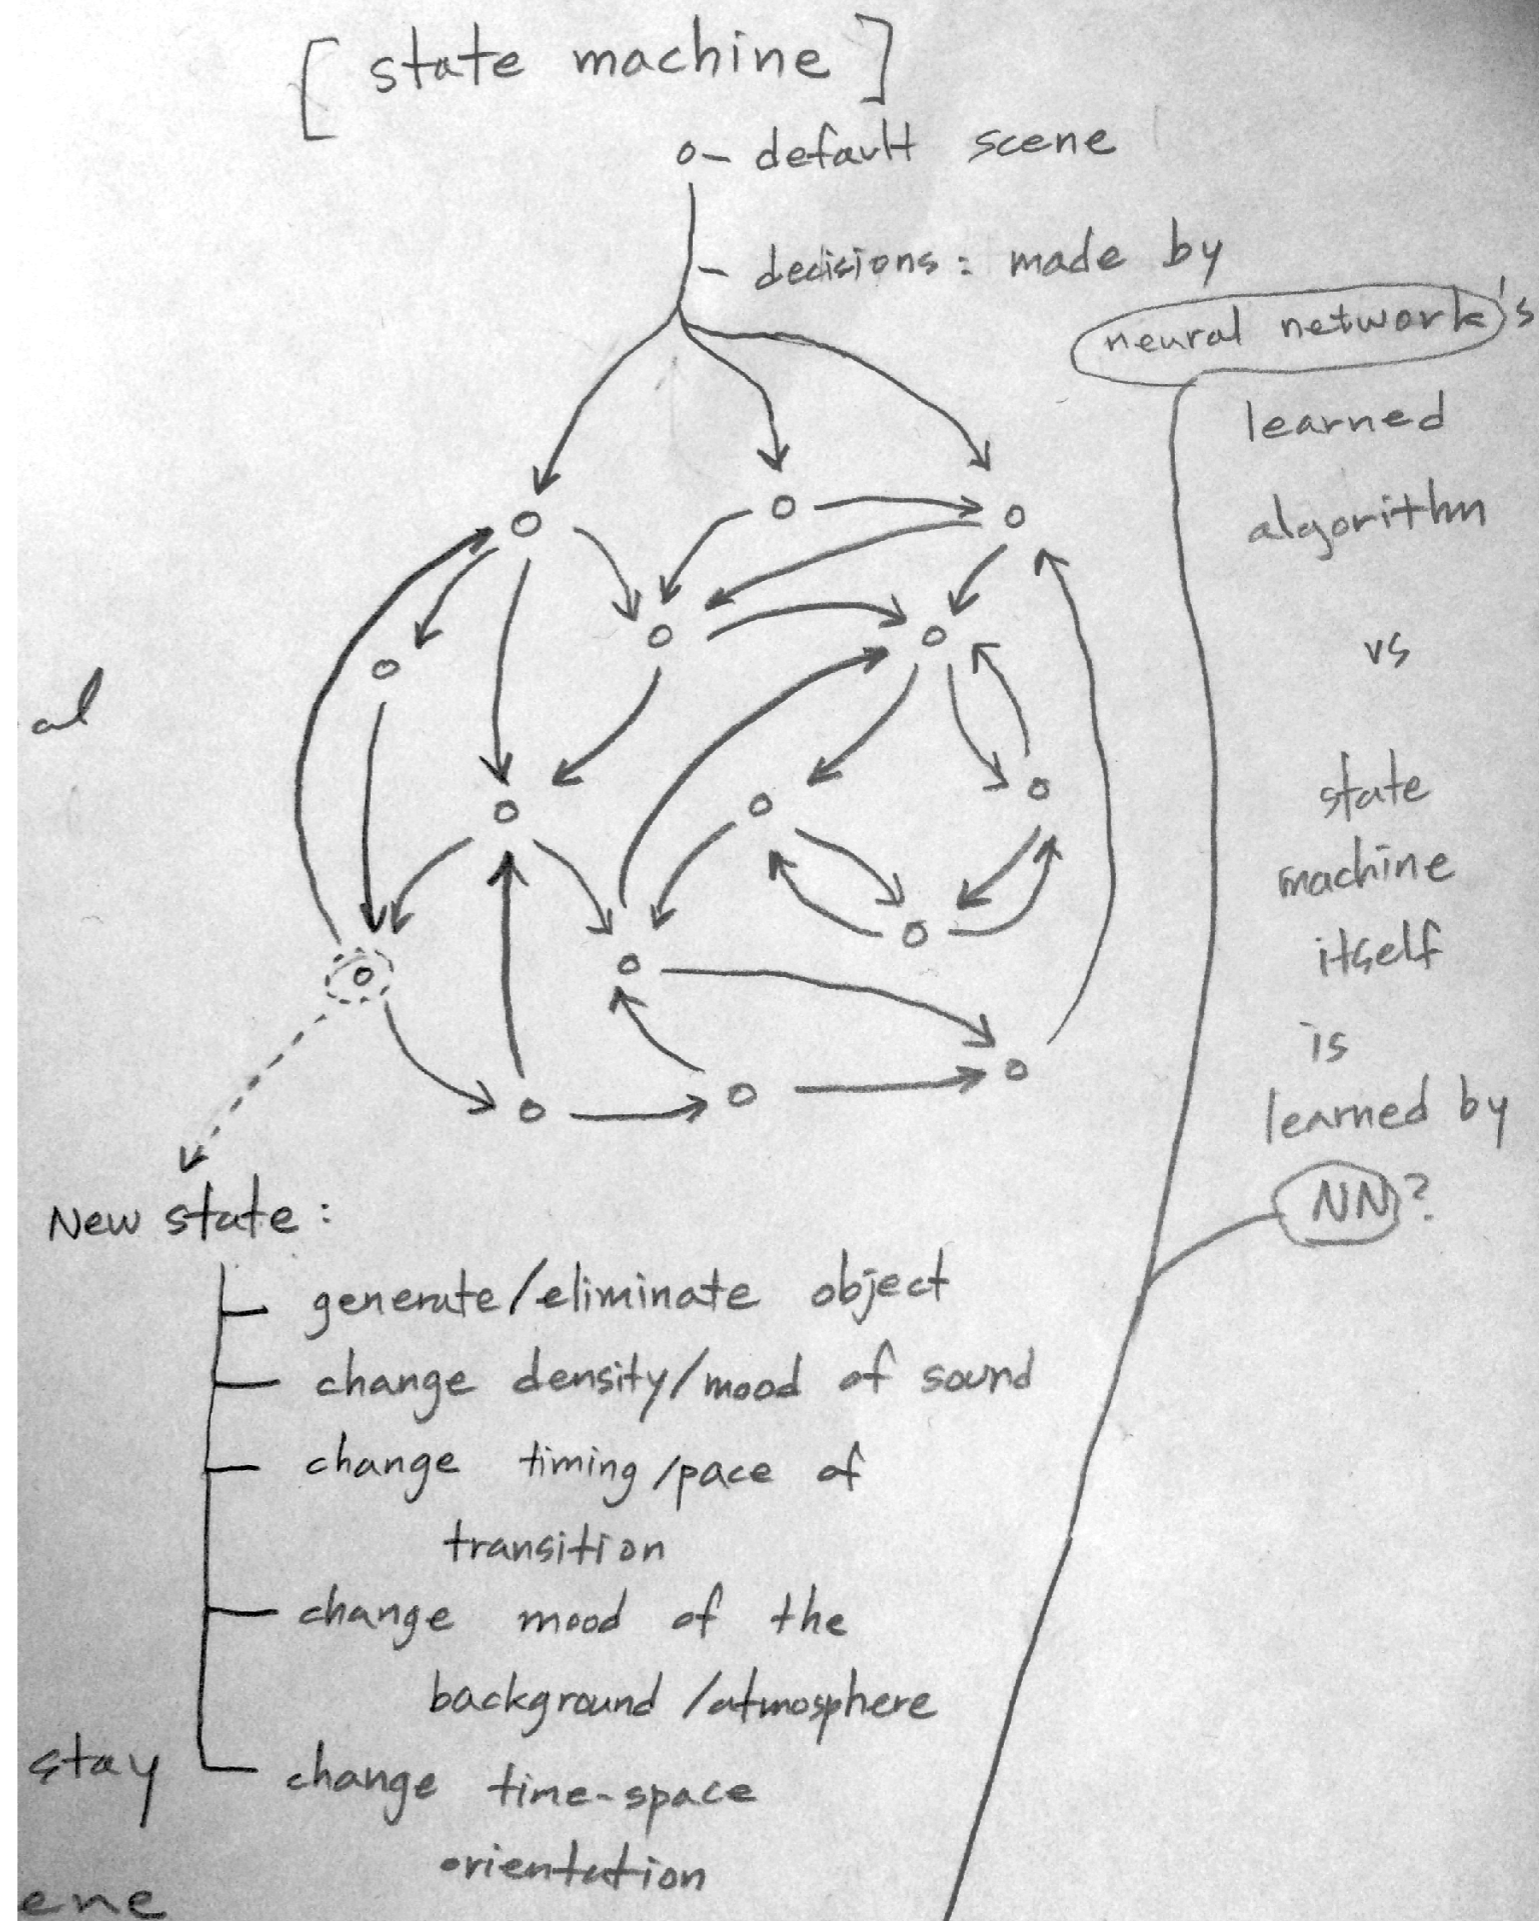 [ state machine ]
o- default scene
- decisions: made by
neural network's
learned
algorithm
vs
state
machine
itself
is
learned by
NN?
al
New state:
generate/eliminate object
change density/mood of sound
change timing/pace of
transition
change mood of the
background/atmosphere
stay
change time-space
orientation
ene